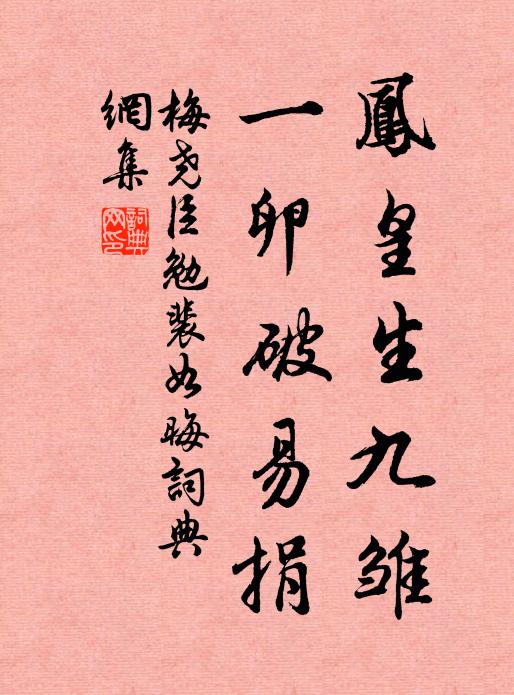 鳳皇生九雏
一卵破易捐
梅尧臣勉裴如晦詞典
網集
詞典
网印